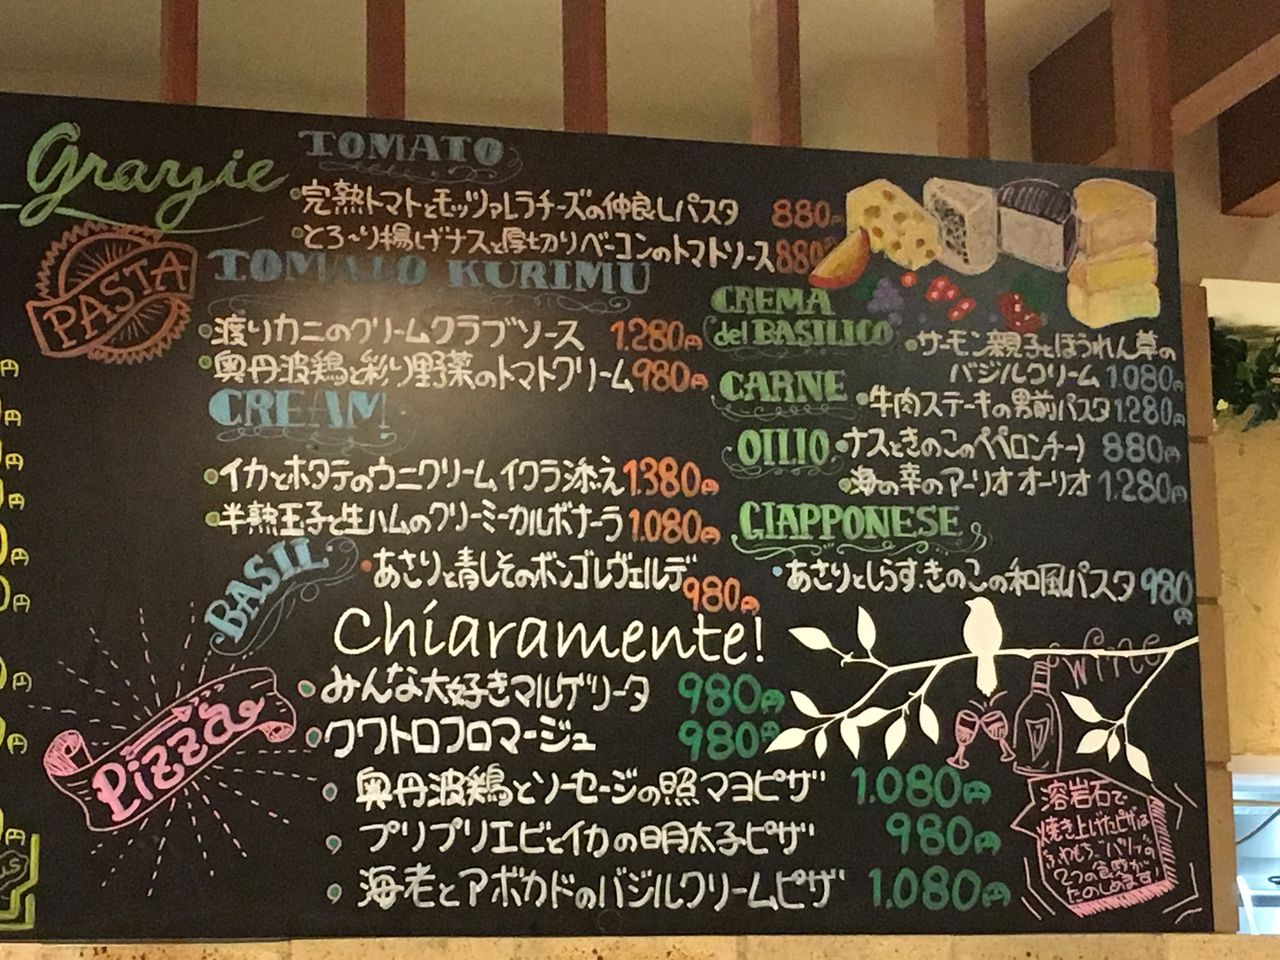 Grazie
PASTA
TOMATO
完熟トマトとモッツァレラチーズの仲良しパスタ 880円
とろ〜り揚げナスと厚切りベーコンのトマトソース 880円
TOMATO KURIMU
渡りカニのクリームクラブソース 1.280円
奥丹波鶏と彩り野菜のトマトクリーム 980円
CREAM
イカとホタテのウニクリームイクラ添え 1.380円
半熟玉子と生ハムのクリーミーカルボナーラ 1.080円
BASIL
あさりと青しそのボンゴレヴェルデ
980円
CREMA
del BASILICO
サーモン親子とほうれん草の
バジルクリーム 1.080円
CARNE
牛肉ステーキの男前パスタ 1.280円
OILIO
ナスときのこのペペロンチーノ 880円
海の幸のアーリオオーリオ 1.280円
GIAPPONESE
あさりとしらす.きのこの和風パスタ 980円
Chiaramente!
Pizza
みんな大好きマルゲリータ 980円
クワトロフロマージュ 980円
奥丹波鶏とソーセージの照マヨピザ 1.080円
プリプリエビとイカの明太子ピザ 980円
海老とアボカドのバジルクリームピザ 1.080円
wine
溶岩石で
焼き上げたピザは
"ふわもち""パリッ"の
2つの食感が
たのしめます!